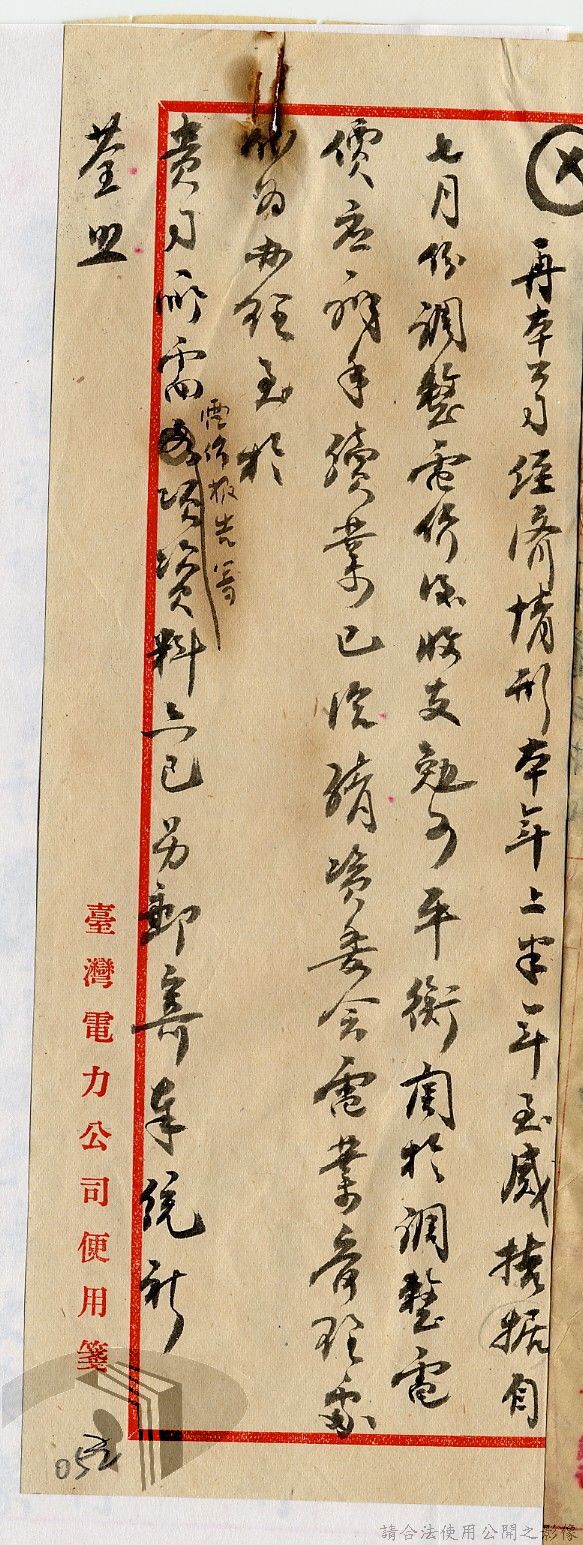 再本公司經濟情形本年上半年至感拮据自
七月份調整電價後收支勉可平衡関於調整電
價應辦手續業已洽請資委會電業管理處
代為办理至於
貴司所需各項資料亦已另郵寄奉統祈
電價報告等
荃照
臺灣電力公司便用箋
052
請合法使用公開之影像